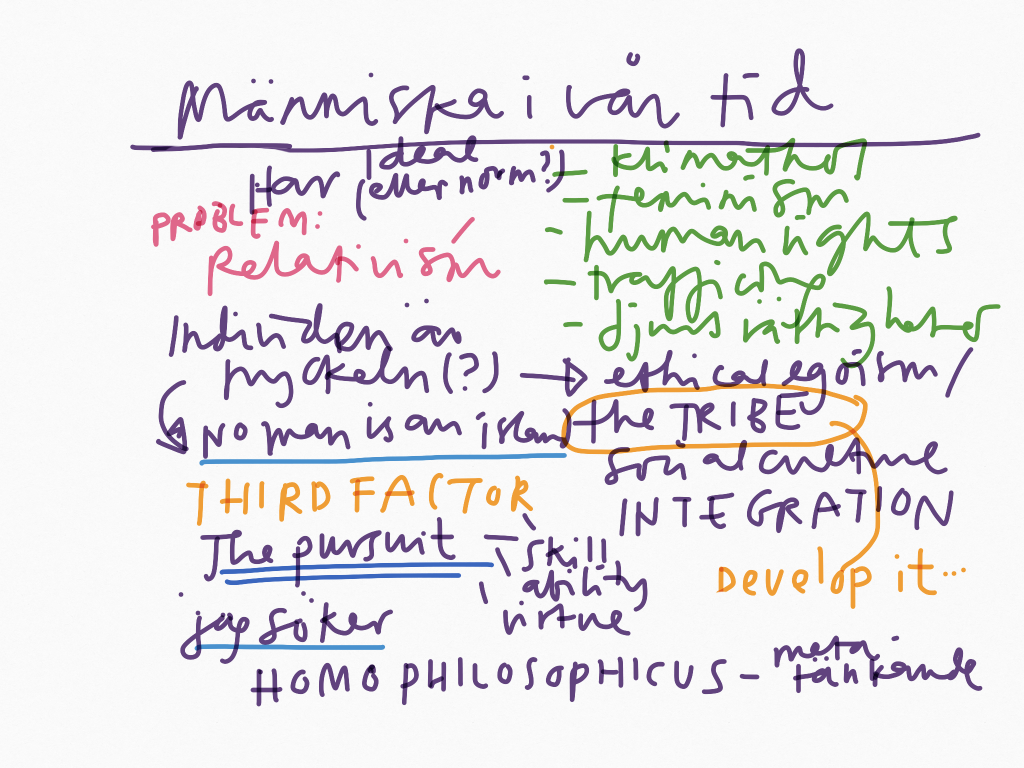 Människa i vår tid
Har Ideal
(eller norm?)
- feminism
- human rights
PROBLEM:
Relativism
Individen är
nyckeln (?) → ethical egoism /
No man is an island
the TRIBE
social culture
INTEGRATION
Develop it...
THIRD FACTOR
The pursuit - skill
ability
virtue
jag söker
HOMO PHILOSOPHICUS - meta
tänkande